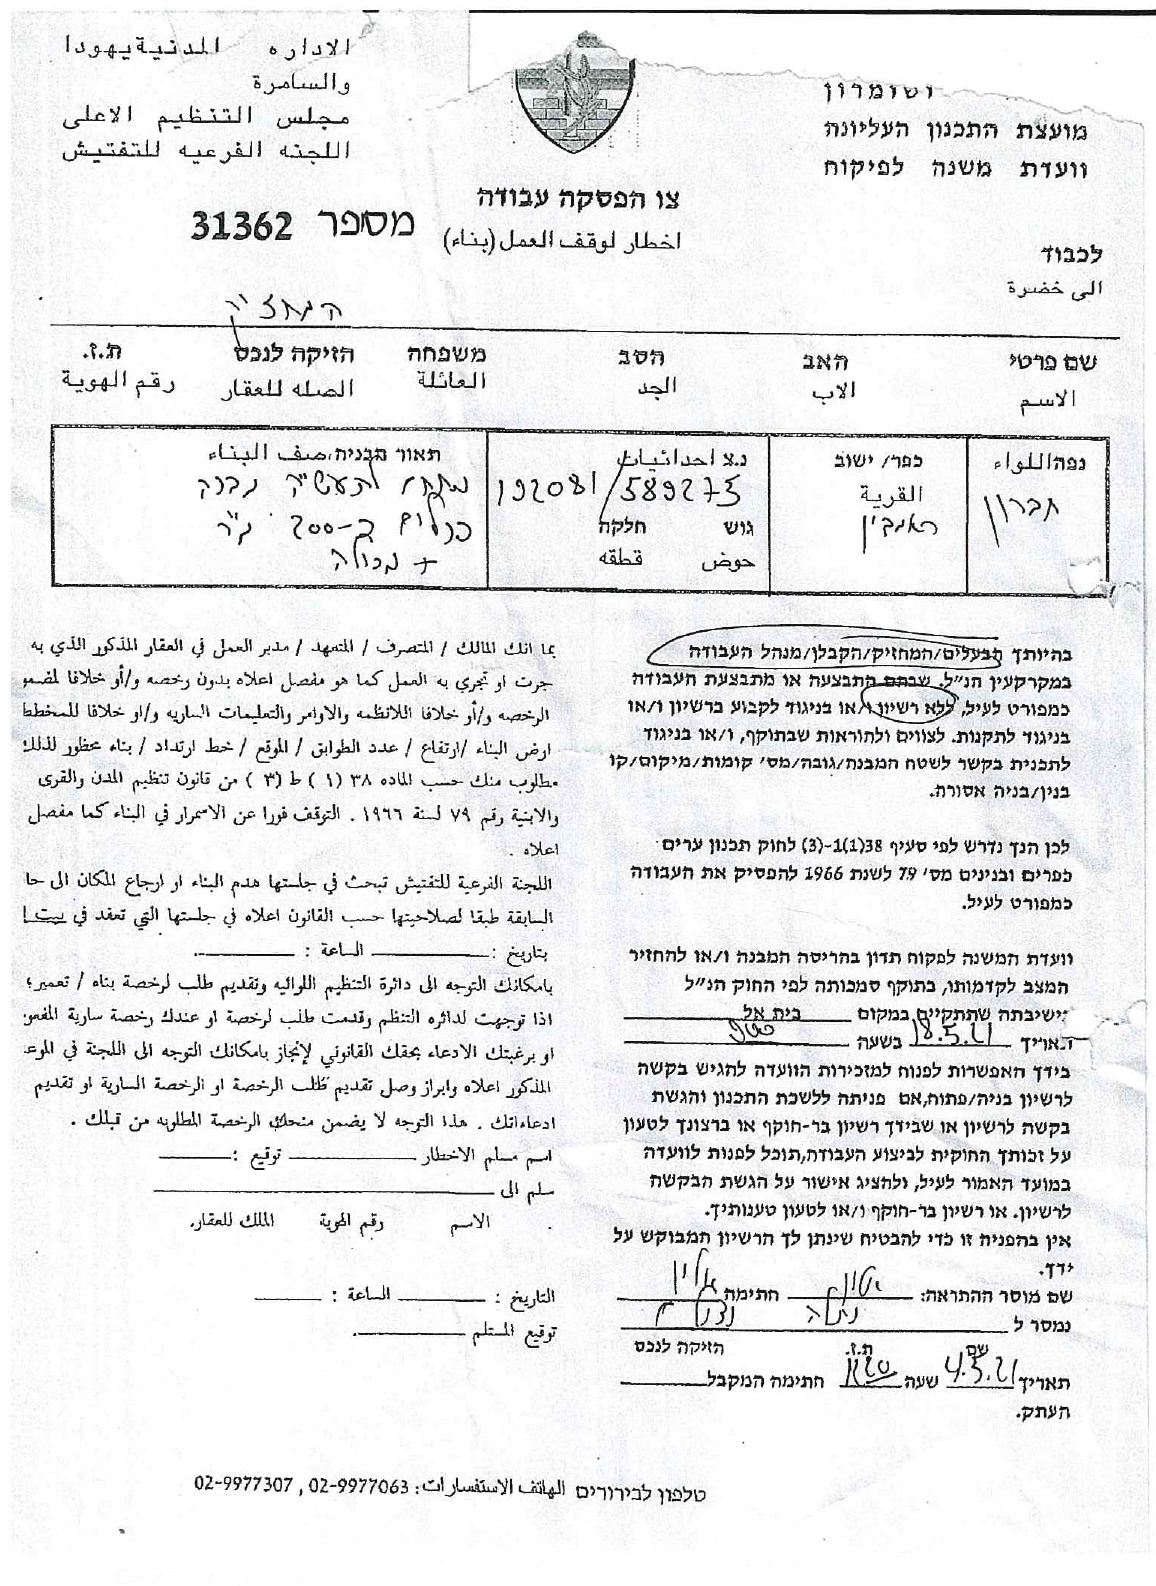 ושומרון
מועצת התכנון העליונה
וועדת משנה לפיקוח
الاداره المدنية يهودا
والسامرة
مجلس التنظيم الاعلى
اللجنه الفرعيه للتفتيش
צו הפסקה עבודה
اخطار لوقف العمل (بناء)
מספר 31362
לכבוד
الى حضرة
המחזיק
שם פרטי האב הסב משפחה הזיקה לנכס ת.ז.
الاسم الاب الجد العائلة الصله للعقار رقم الهوية
נפה اللواء
חברון
כפר/ ישוב
القرية
נ.צ احداثيات
192081/589273
גוש חלקה
حوض قطقه
תאור הבניה/صف البناء
כ-200 מ"ר
+ מכולה
בהיותך הבעלים/המחזיק/הקבלן/מנהל העבודה
במקרקעין הנ"ל. שבהם התבצעה או מתבצעת העבודה
כמפורט לעיל, ללא רשיון ו/או בניגוד לקבוע ברשיון ו/או
בניגוד לתקנות. לצווים ולהוראות שבתוקף, ו/או בניגוד
לתכנית בקשר לשטח המבנה/גובה/מס' קומות/מיקום/קו
בנין/בניה אסורה.
לכן הנך נדרש לפי סעיף 38(1)1-(3) לחוק תכנון ערים
כפרים ובנינים מס' 79 לשנת 1966 להפסיק את העבודה
כמפורט לעיל.
וועדת המשנה לפקוח תדון בהריסה המבנה ו/או להחזיר
המצב לקדמותו, בתוקף סמכותה לפי החוק הנ"ל
ישיבתה שתתקיים במקום בית אל
תאריך 18.5.21 בשעה
בידך האפשרות לפנוח למזכירות הוועדה להגיש בקשה
לרשיון בניה/פתוח,אם פניתה ללשכת התכנון והגשת
בקשה לרשיון או שבידך רשיון בר-חוקף או ברצונך לטעון
על זכותך החוקית לביצוע העבודה,תוכל לפנות לוועדה
במועד האמור לעיל, ולהציג אישור על הגשת הבקשה
לרשיון. או רשיון בר-חוקף ו/או לטעון טענותיך.
אין בהפניה זו כדי להבטיח שינתן לך הרשיון המבוקש על
ידך.
שם מוסר ההתראה: חתימה
נמסר ל
שם ת.ז. הזיקה לנכס
תאריך 4.5.21 שעה חתימה המקבל
העתק.
بما انك المالك / المتصرف / المتعهد / مدير العمل في العقار المذكور الذي به
جرت او تجري به العمل كما هو مفصل اعلاه بدون رخصه و/أو خلافا لمضمو
الرخصه و/أو خلافا اللانظمه والاوامر والتعليمات الساريه و/او خلافا للمخطط
ارض البناء /ارتفاع / عدد الطوابق / الموقع / خط ارتداد / بناء محظور لذلك
مطلوب منك حسب الماده ٣٨ (١) ط (٣) من قانون تنظيم المدن والقرى
والابنية رقم ٧٩ لسنة ١٩٦٦ . التوقف فورا عن الاسمرار في البناء كما مفصل
اعلاه .
اللجنة الفرعية للتفتيش تبحث في جلستها هدم البناء او ارجاع المكان الى حا
السابقة طبقا لصلاحيتها حسب القانون اعلاه في جلستها التي تعقد في بيت ا
بتاريخ : الساعة :
بامكانك التوجه الى دائرة التنظيم اللوائيه وتقديم طلب لرخصة بناء / تعمير؛
اذا توجهت لدائره التنظم وقدمت طلب لرخصة او عندك رخصة سارية المفعو
او برغبتك الادعاء بحقك القانوني لإنجاز بامكانك التوجه الى اللجنة في الموع
المذكور اعلاه وابراز وصل تقديم طلب الرخصة او الرخصة السارية او تقديم
ادعاءاتك . هذا التوجه لا يضمن منحك الرخصة المطلوبه من قبلك .
اسم مسلم الاخطار توقيع :
سلم الى
الاسم رقم الهوية الملك للعقار.
التاريخ : الساعة :
توقيع المستلم
טלפון לבירורים الهاتف الاستفسارات: 02-9977063 , 02-9977307